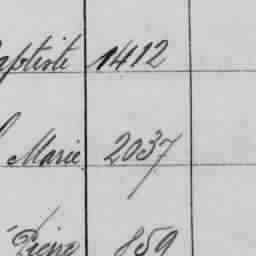 aptiste 1412
Marie 2037
Pierre 859